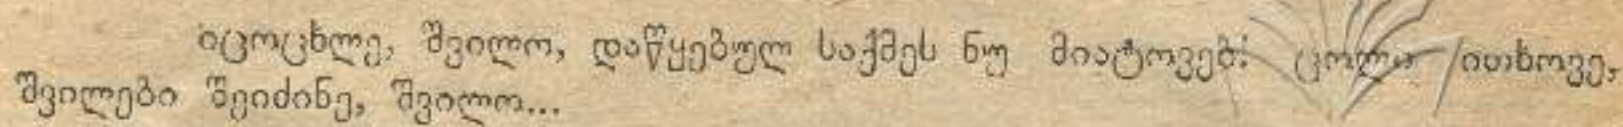 იცოცხლე, შვილო, დაწყებულ საქმეს ნუ მიატოვებ! ცოლი ითხოვე,
შვილები შეიძინე, შვილო...